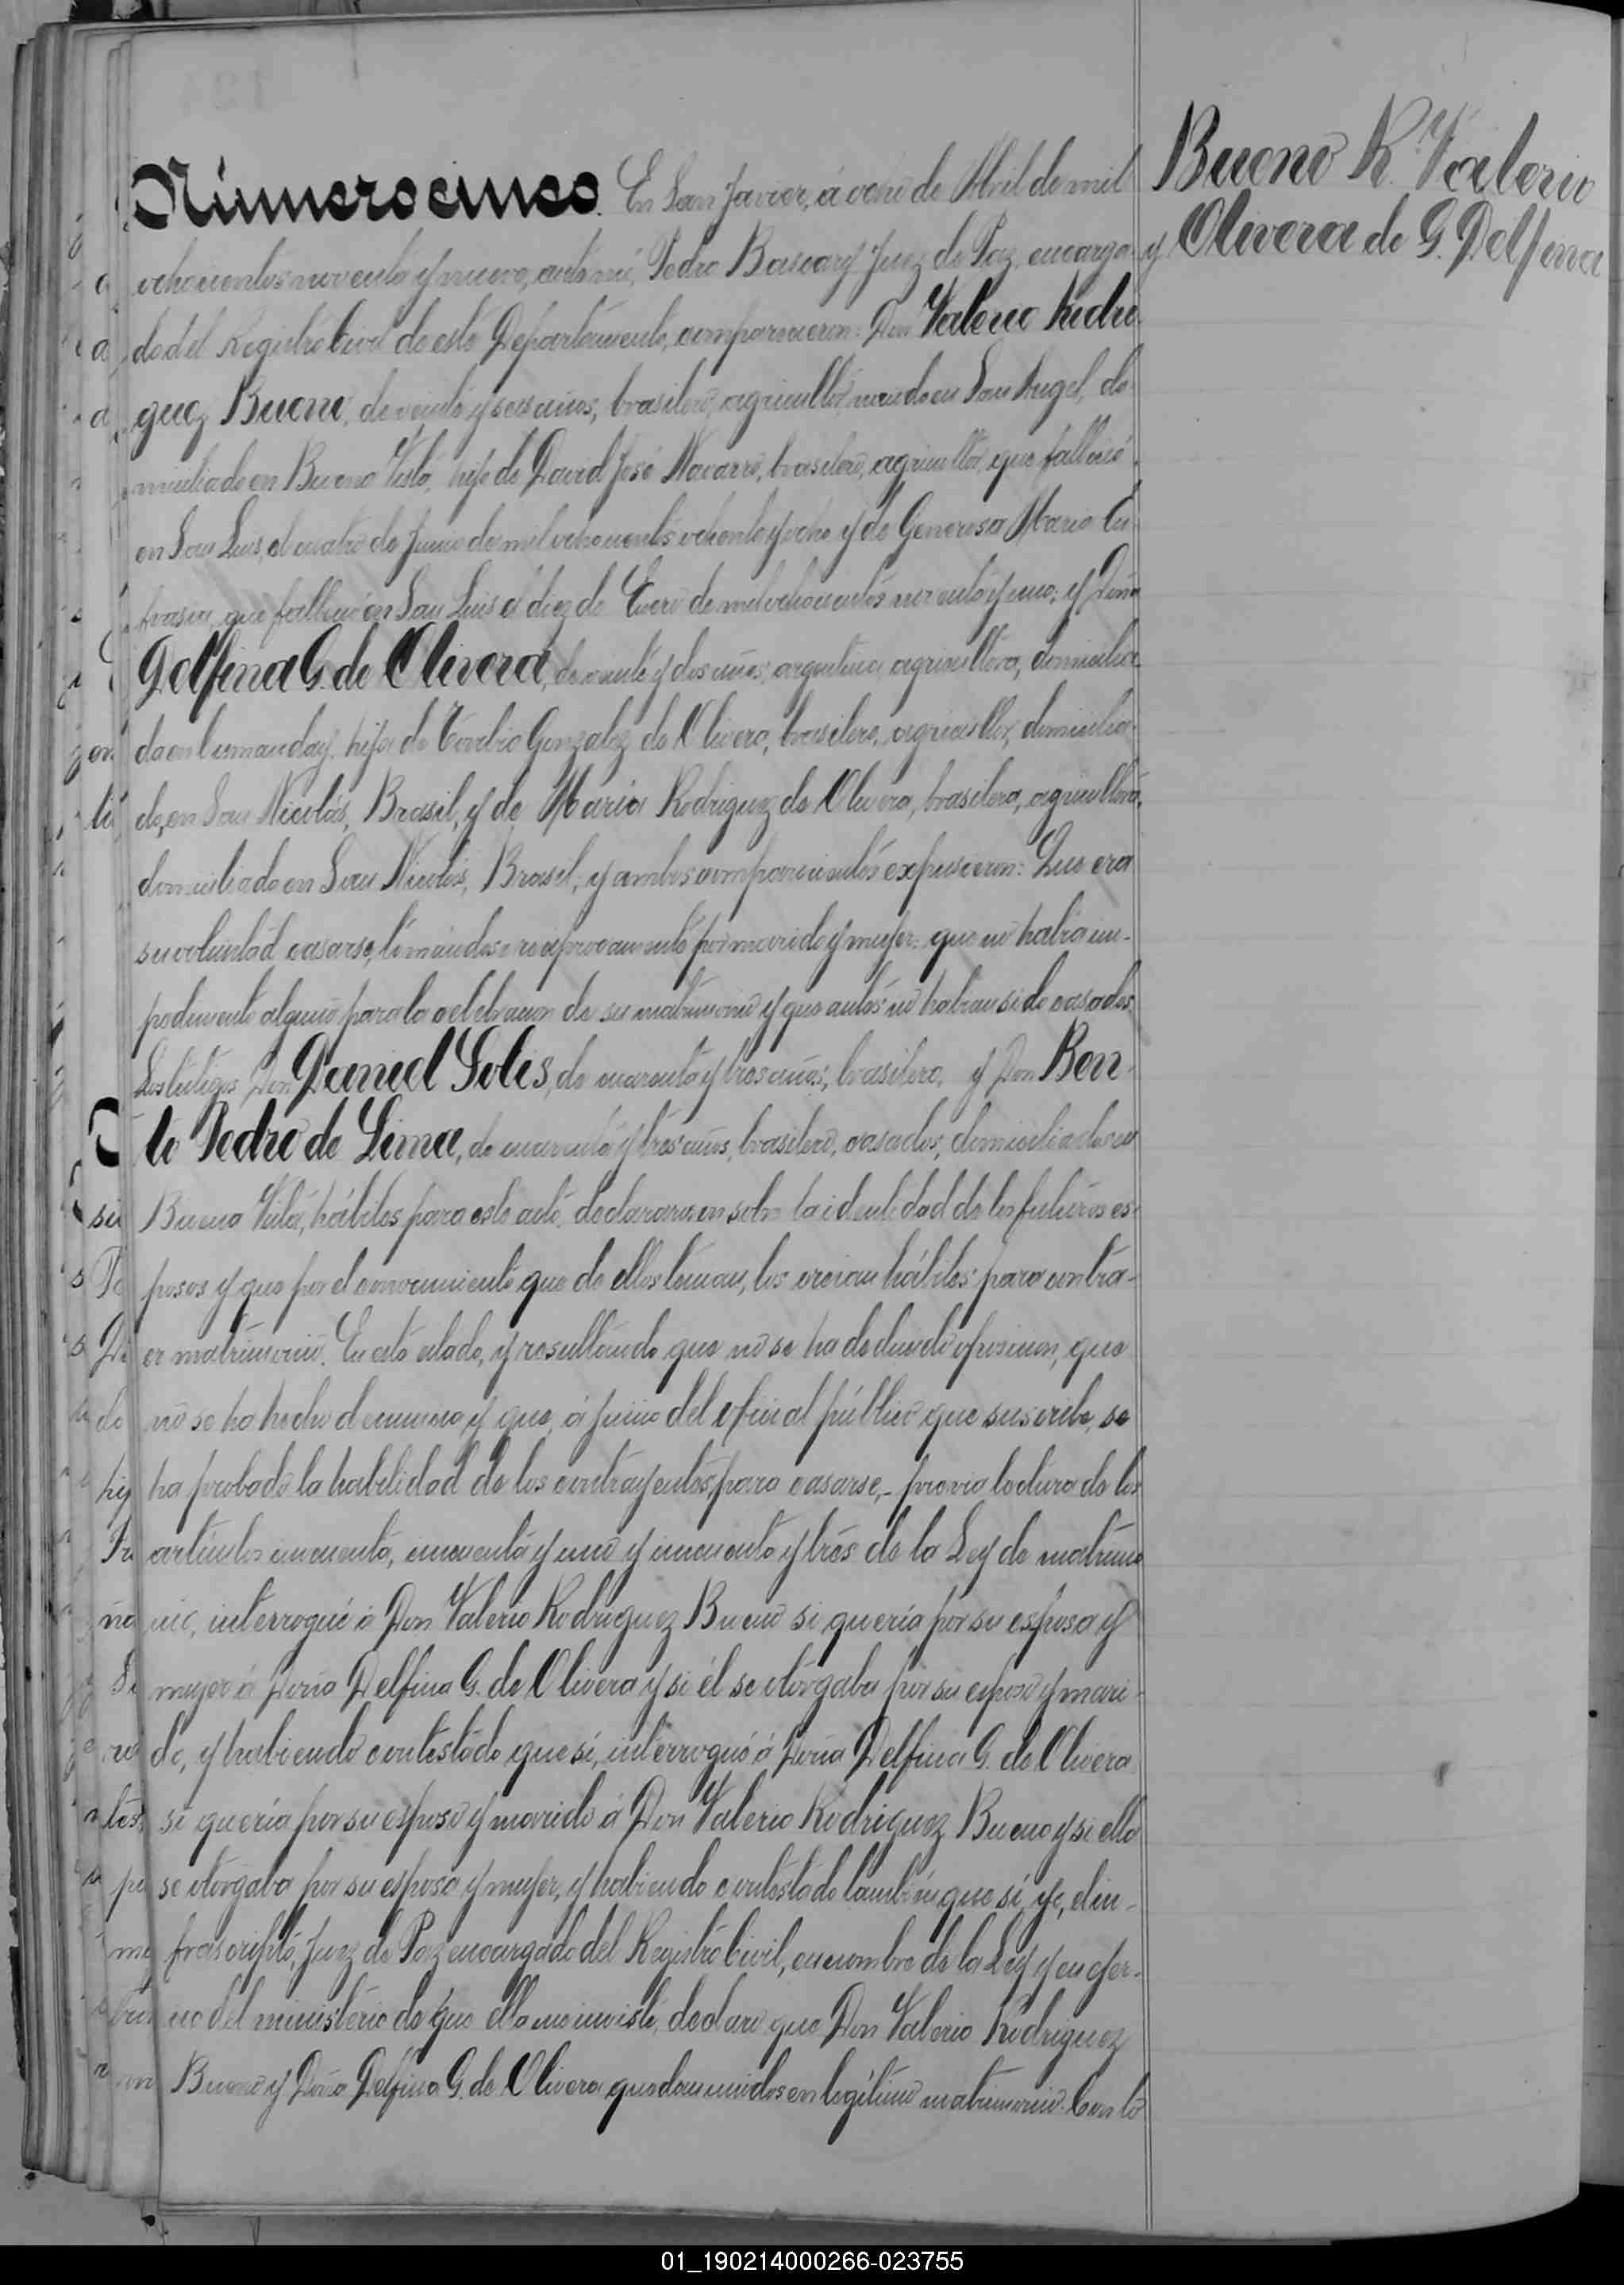 Bueno R. Valerio
y Olivera de G. Delfina
Número cinco. En San Javier, á ocho de Abril de mil
ochocientos noventa y nueve, ante mí, Pedro Bascary, Juez de Paz, encarga-
do del Registro Civil de este Departamento, comparecieron: Don Valerio Rodri-
guez Bueno, de veinte y seis años, brasilero, agricultor, nacido en San Angel, do-
miciliado en Buena Vista, hijo de David José Navarro, brasilero, agricultor, que falleció
en San Luis, el cuatro de Junio de mil ochocientos ochenta y ocho y de Generosa Maria
que falleció en San Luis el diez de Enero de mil ochocientos noventa y uno; y Doña
Delfina G. de Olivera, de veinte y dos años, argentina, agricultora, domicilia-
da en hija de Toribio Gonzalez de Olivera, brasilero, agricultor, domicilia-
do, en San Nicolás, Brasil, y de Maria Rodriguez de Olivera, brasilera, agricultora,
domiciliada en San Nicolás, Brasil; y ambos comparecientes expusieron: Que era
su voluntad casarse, tomándose reciprocamente por marido y mujer; que no habia im-
pedimento alguno para la celebracion de su matrimonio y que antes no habian sido casados.
Los testigos Don Daniel Solis, de cuarenta y tres años, brasilero, y Don Ben-
to Pedro de Lima, de cuarenta y tres años, brasilero, casados, domiciliados en
Buena Vista, hábiles para este acto, declararon sobre la identidad de los futuros es-
posos y que por el conocimiento que de ellos tenian, los creian hábiles para contra-
er matrimonio. En este estado, y resultando que no se ha deducido oposicion, que
no se ha hecho denuncia y que, á juicio del oficial público que suscribe, se
ha probado la habilidad de los contrayentes, para casarse,- previa lectura de los
artículos cincuenta, cincuenta y uno y cincuenta y tres de la Ley de matrimo
nio, interrogué á Don Valerio Rodriguez Bueno si queria por su esposa y
mujer á Doña Delfina G. de Olivera y si él se otorgaba por su esposo y mari-
do, y habiendo contestado que sí, interrogué á Doña Delfina G. de Olivera
si queria por su esposo y marido á Don Valerio Rodriguez Bueno y si ella
se otorgaba por su esposa y mujer, y habiendo contestado tambien que sí, yo, el in-
frascripto, Juez de Paz encargado del Registro Civil, en nombre de la Ley y en ejer-
cicio del ministerio de que ella me inviste, declaro que Don Valerio Rodriguez
Bueno y Doña Delfina G. de Olivera quedan unidos en legítimo matrimonio. Con lo
01_190214000266-023755